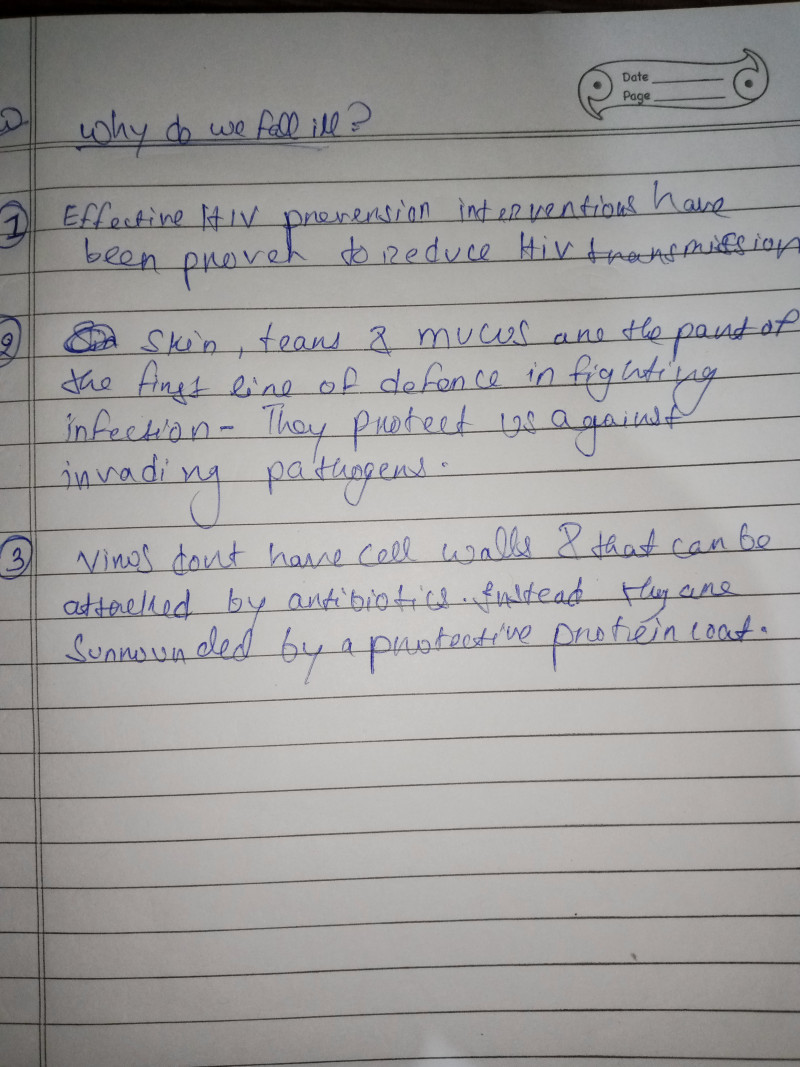 Date
Page
Why do we fall ill?
1 Effective HIV prevension interventions have
been proven to reduce HIV transmission
2 Skin, tears & mucus are the part of
the first line of defence in fighting
infection - They protect us against
invading pathogens.
3 Virus dont have cell walls & that can be
attacked by antibiotics. Instead they are
Surrounded by a protective protein coat.